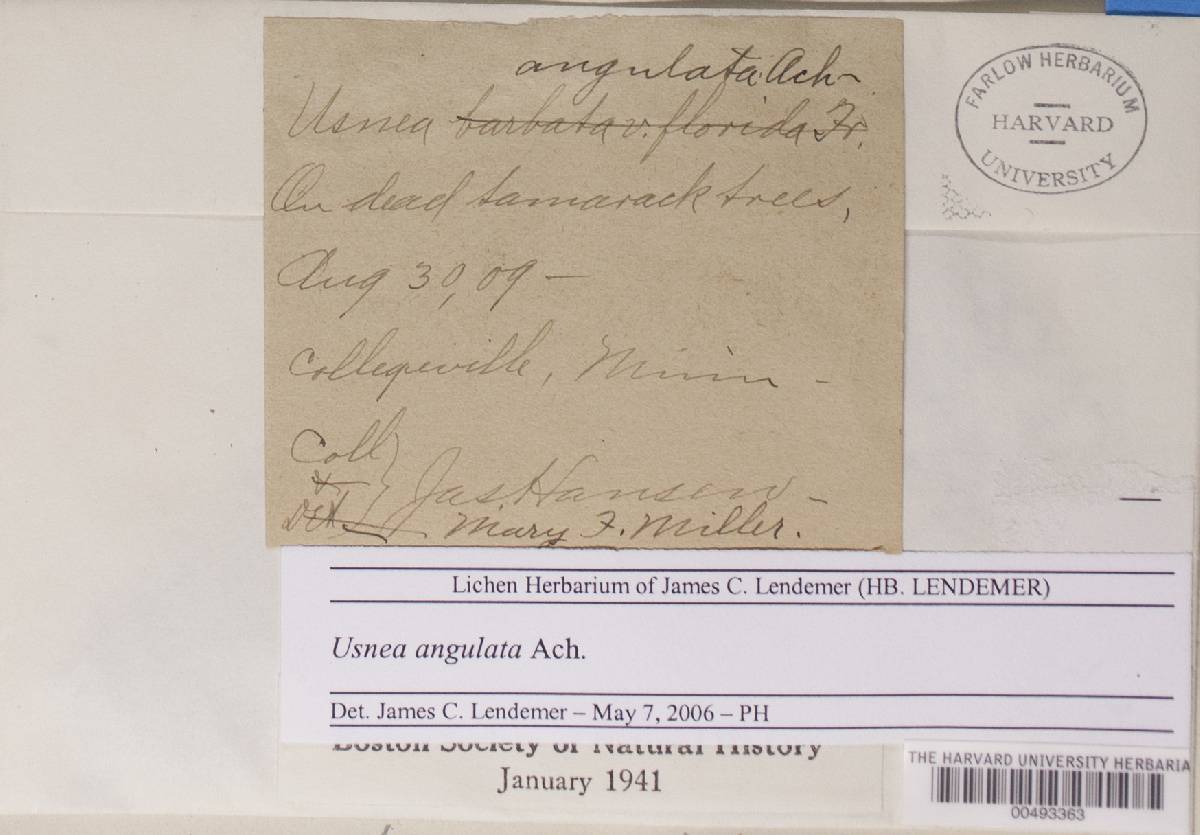 angulata Ach.
Usnea barbata v. florida Fr.
On dead tamarack trees,
Aug 30, 09 –
Collegeville, Minn –
Coll
&
Det
Jas Hansen –
Mary F. Miller.
FARLOW HERBARIUM
HARVARD
UNIVERSITY
Lichen Herbarium of James C. Lendemer (HB. LENDEMER)
Usnea angulata Ach.
Det. James C. Lendemer – May 7, 2006 – PH
Boston Society of Natural History
January 1941
THE HARVARD UNIVERSITY HERBARIA
00493363